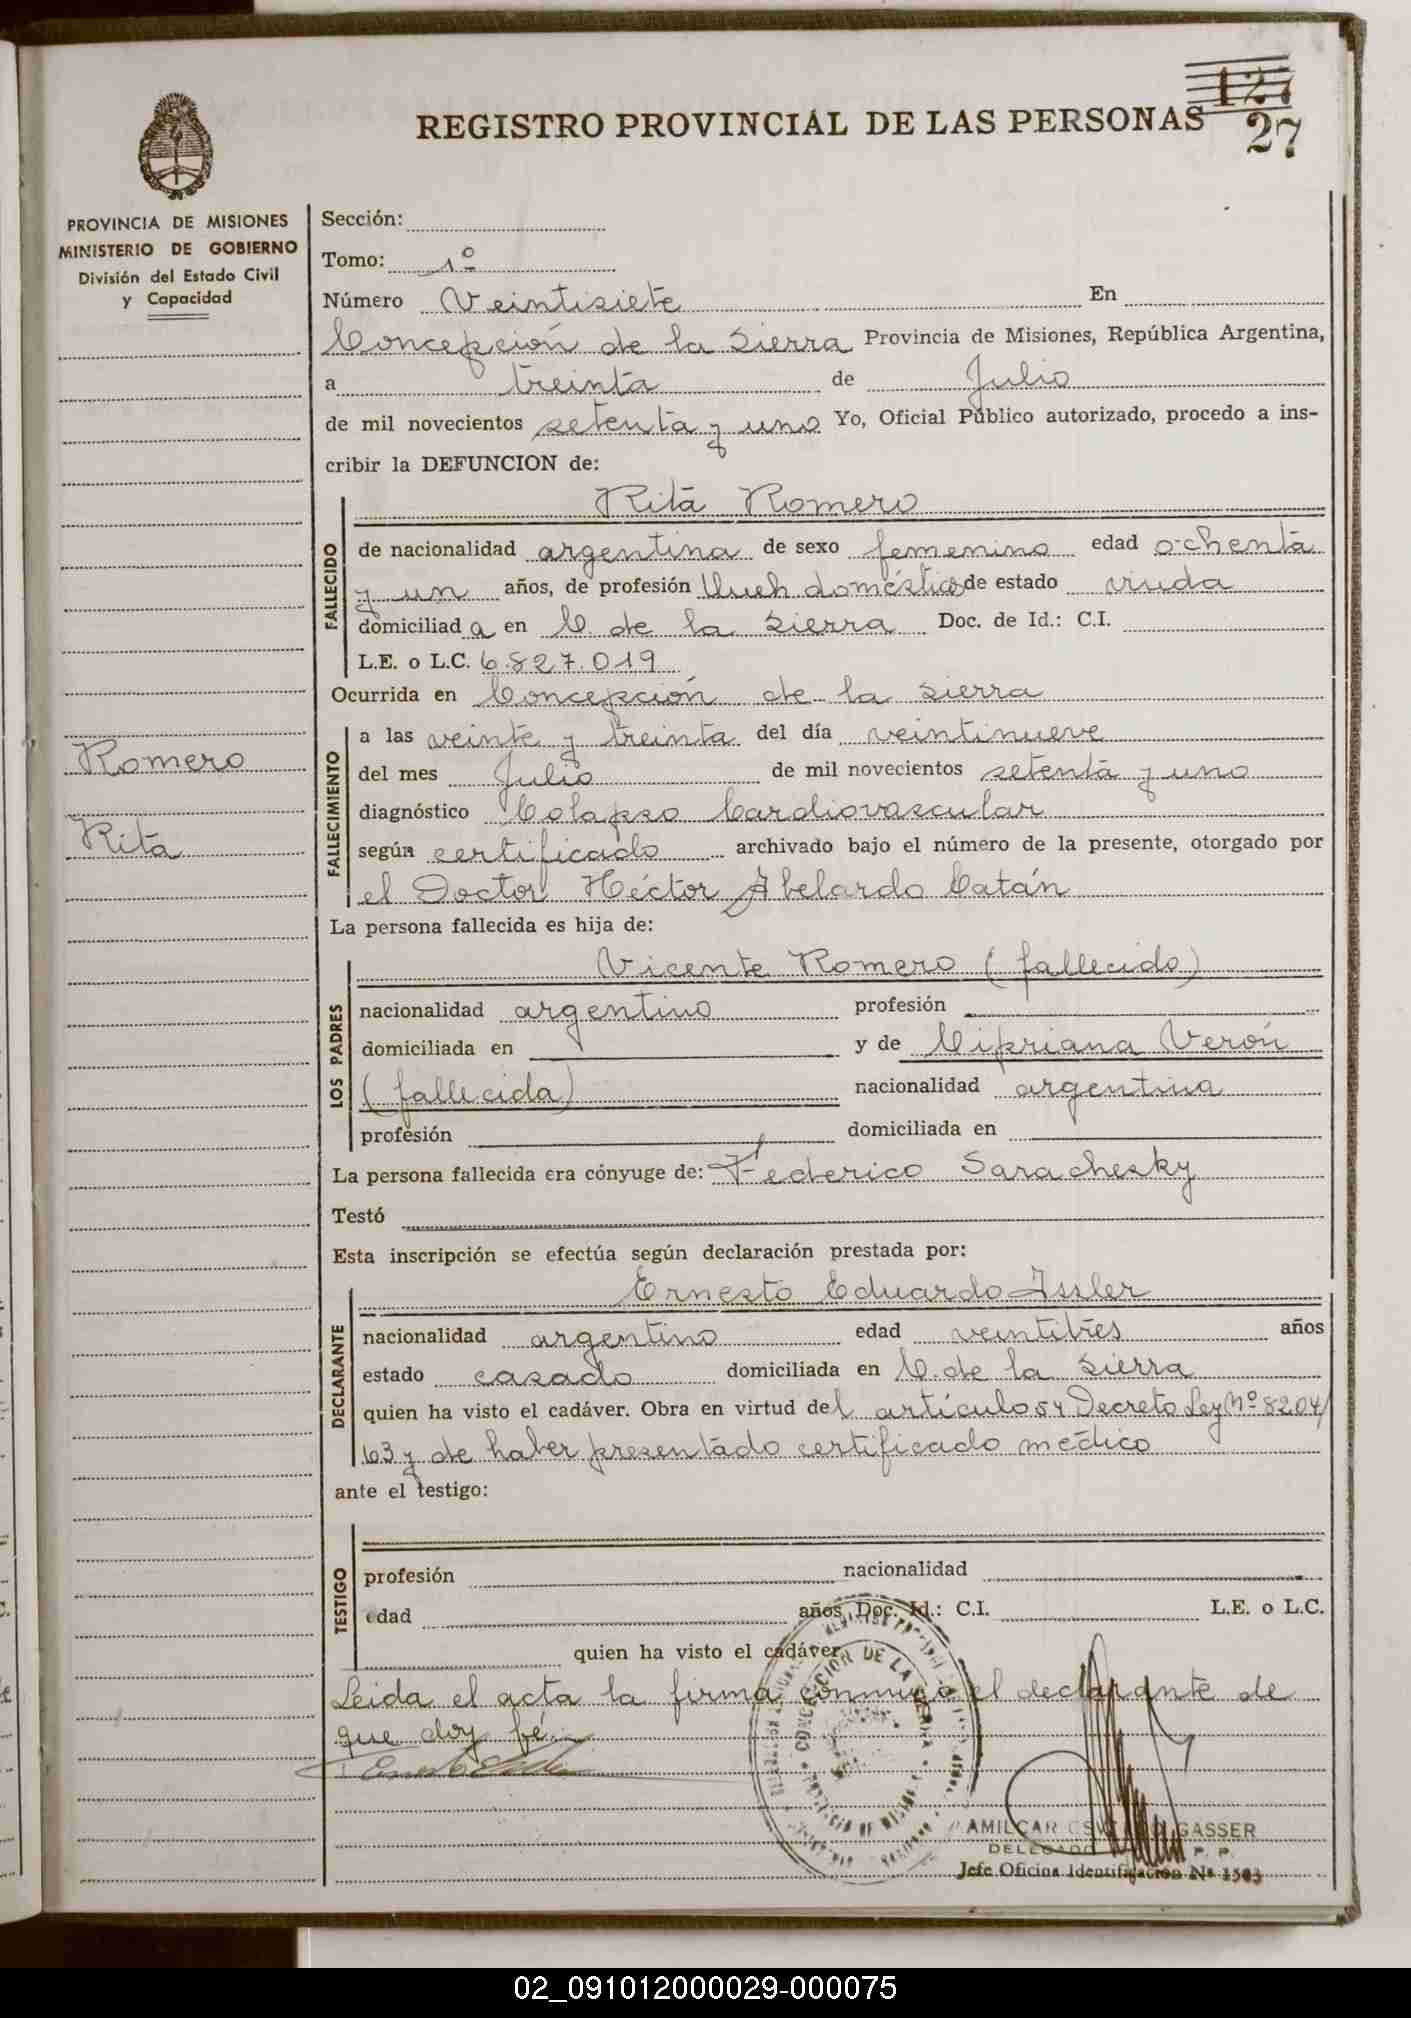 127
REGISTRO PROVINCIAL DE LAS PERSONAS
27
PROVINCIA DE MISIONES
MINISTERIO DE GOBIERNO
División del Estado Civil
y Capacidad
Romero
Rita
Sección:
Tomo: 1º
Número Veintisiete En
Concepción de la Sierra Provincia de Misiones, República Argentina,
a treinta de Julio
de mil novecientos setenta y uno Yo, Oficial Público autorizado, procedo a ins-
cribir la DEFUNCION de:
FALLECIDO
Rita Romero
de nacionalidad argentina de sexo femenino edad ochenta
y un años, de profesión Queh domésticos de estado viuda
domiciliad a en C. de la Sierra Doc. de Id.: C.I.
L.E. o L.C. 6.827.019
Ocurrida en Concepción de la Sierra
FALLECIMIENTO
a las veinte y treinta del día veintinueve
del mes Julio de mil novecientos setenta y uno
diagnóstico Colapso Cardiovascular
según certificado archivado bajo el número de la presente, otorgado por
el Doctor Héctor Abelardo Catán
La persona fallecida es hija de:
LOS PADRES
Vicente Romero (fallecido)
nacionalidad argentino profesión
domiciliada en y de Cipriana Verón
(fallecida) nacionalidad argentina
profesión domiciliada en
La persona fallecida era cónyuge de: Federico Sarachesky
Testó
Esta inscripción se efectúa según declaración prestada por:
DECLARANTE
Ernesto Eduardo Issler
nacionalidad argentino edad veintitrés años
estado casado domiciliada en C. de la Sierra
quien ha visto el cadáver. Obra en virtud del artículo 54 Decreto Ley Nº 8204/
63 y de haber presentado certificado médico
ante el testigo:
TESTIGO
profesión nacionalidad
edad años, Doc. Id.: C.I. L.E. o L.C.
quien ha visto el cadáver
Leida el acta la firma conmigo el declarante de
que doy fé.
CONCEPCION DE LA SIERRA
PROVINCIA DE MISIONES
AMILCAR OSVALDO GASSER
DELEGADO R. P. P.
Jefe Oficina Identificación Nº 1503
02_091012000029-000075